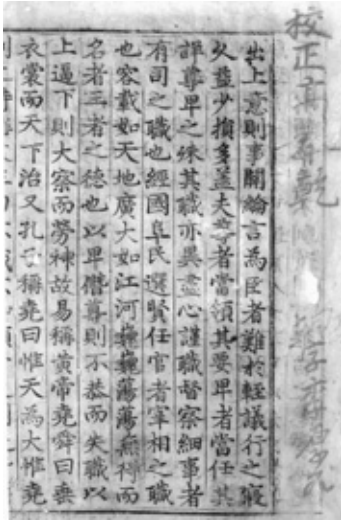 校正
出上意則事關綸言為臣者難於輕議行之寢
久益少損多蓋夫尊者當領其要卑者當任其
詳尊卑之殊其職亦異盡心謹職督察細事者
有司之職也經國阜民選賢任官者宰相之職
也容載如天地廣大如江河巍巍蕩蕩無得而
名者王者之德也以卑僭尊則不恭而失職以
上逼下則大察而勞神故易稱黃帝堯舜曰垂
衣裳而天下治又孔子稱堯曰惟天為大惟堯